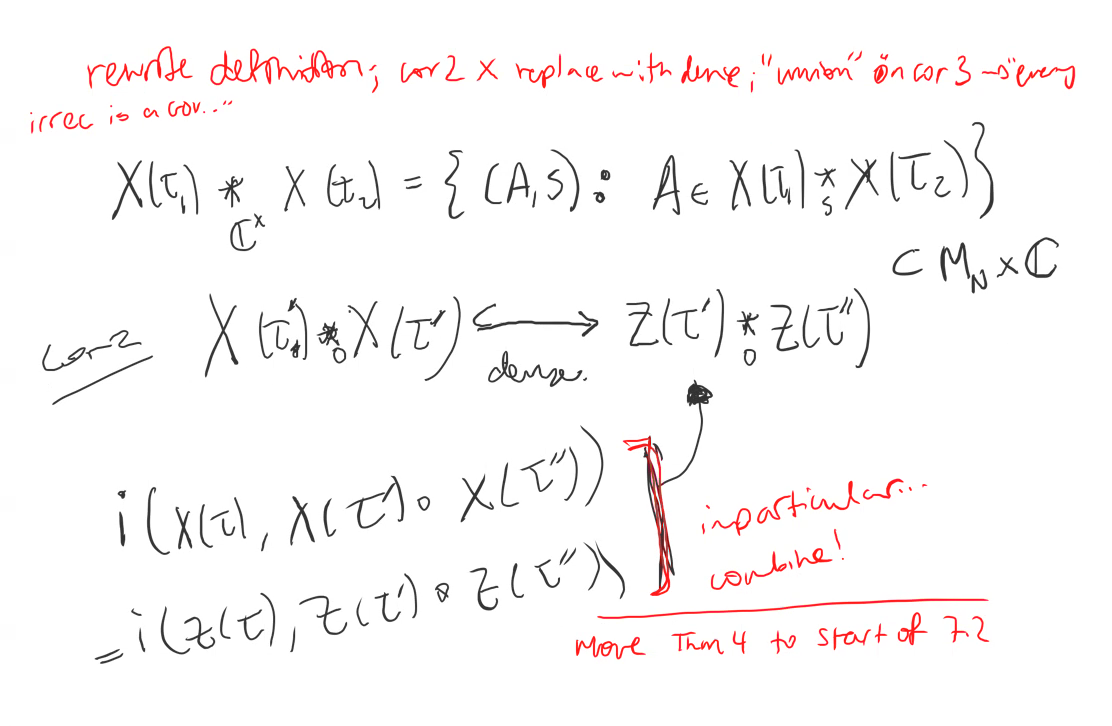 rewrite definition; cor 2 X replace with dense; "union" on cor 3 → "every
irrec is a cov..."
X(τ₁) *_{ℂ^×} X(τ₂) = { (A,s) : A ∈ X(τ₁) *_s X(τ₂) }
⊂ M_N × ℂ
cor 2 X(τ') *_0 X(τ'') ↪ Z(τ') *_0 Z(τ'')
dense.
i(X(τ), X(τ') ∘ X(τ''))
in particular...
combine!
= i(Z(τ), Z(τ') ∘ Z(τ''))
Move Thm 4 to start of 7.2